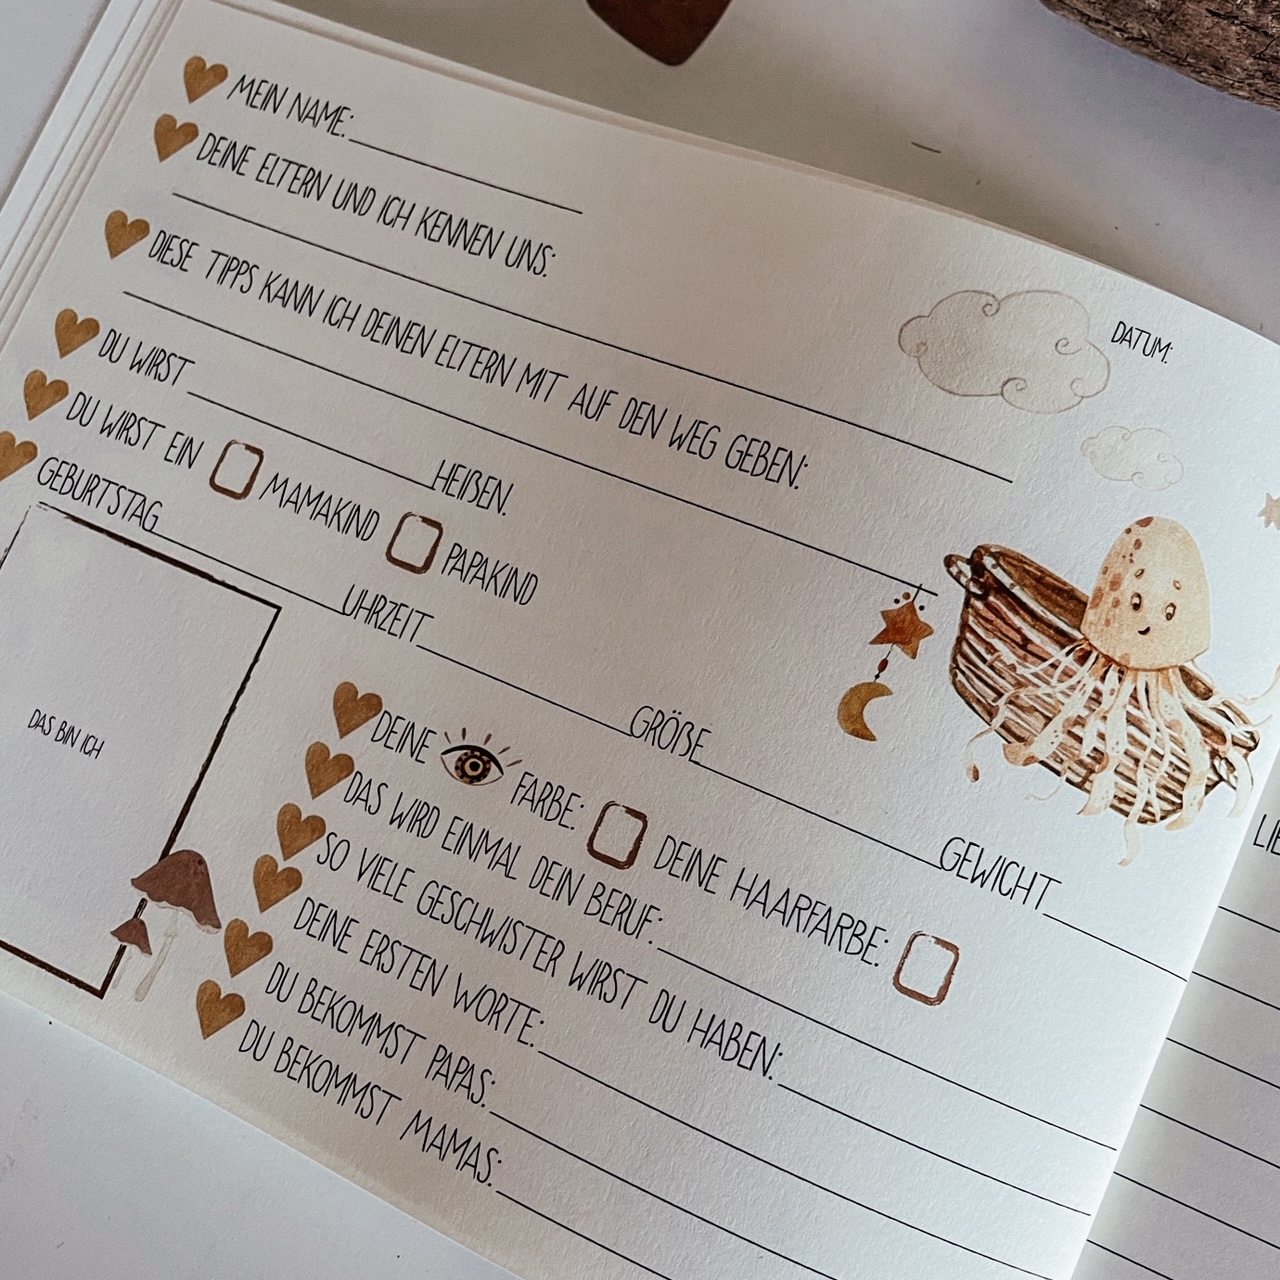 MEIN NAME:
DEINE ELTERN UND ICH KENNEN UNS:
DATUM:
DIESE TIPPS KANN ICH DEINEN ELTERN MIT AUF DEN WEG GEBEN:
DU WIRST HEIßEN.
DU WIRST EIN MAMAKIND PAPAKIND
GEBURTSTAG UHRZEIT GRÖßE GEWICHT
DAS BIN ICH
DEINE FARBE: DEINE HAARFARBE:
DAS WIRD EINMAL DEIN BERUF:
SO VIELE GESCHWISTER WIRST DU HABEN:
DEINE ERSTEN WORTE:
DU BEKOMMST PAPAS:
DU BEKOMMST MAMAS: